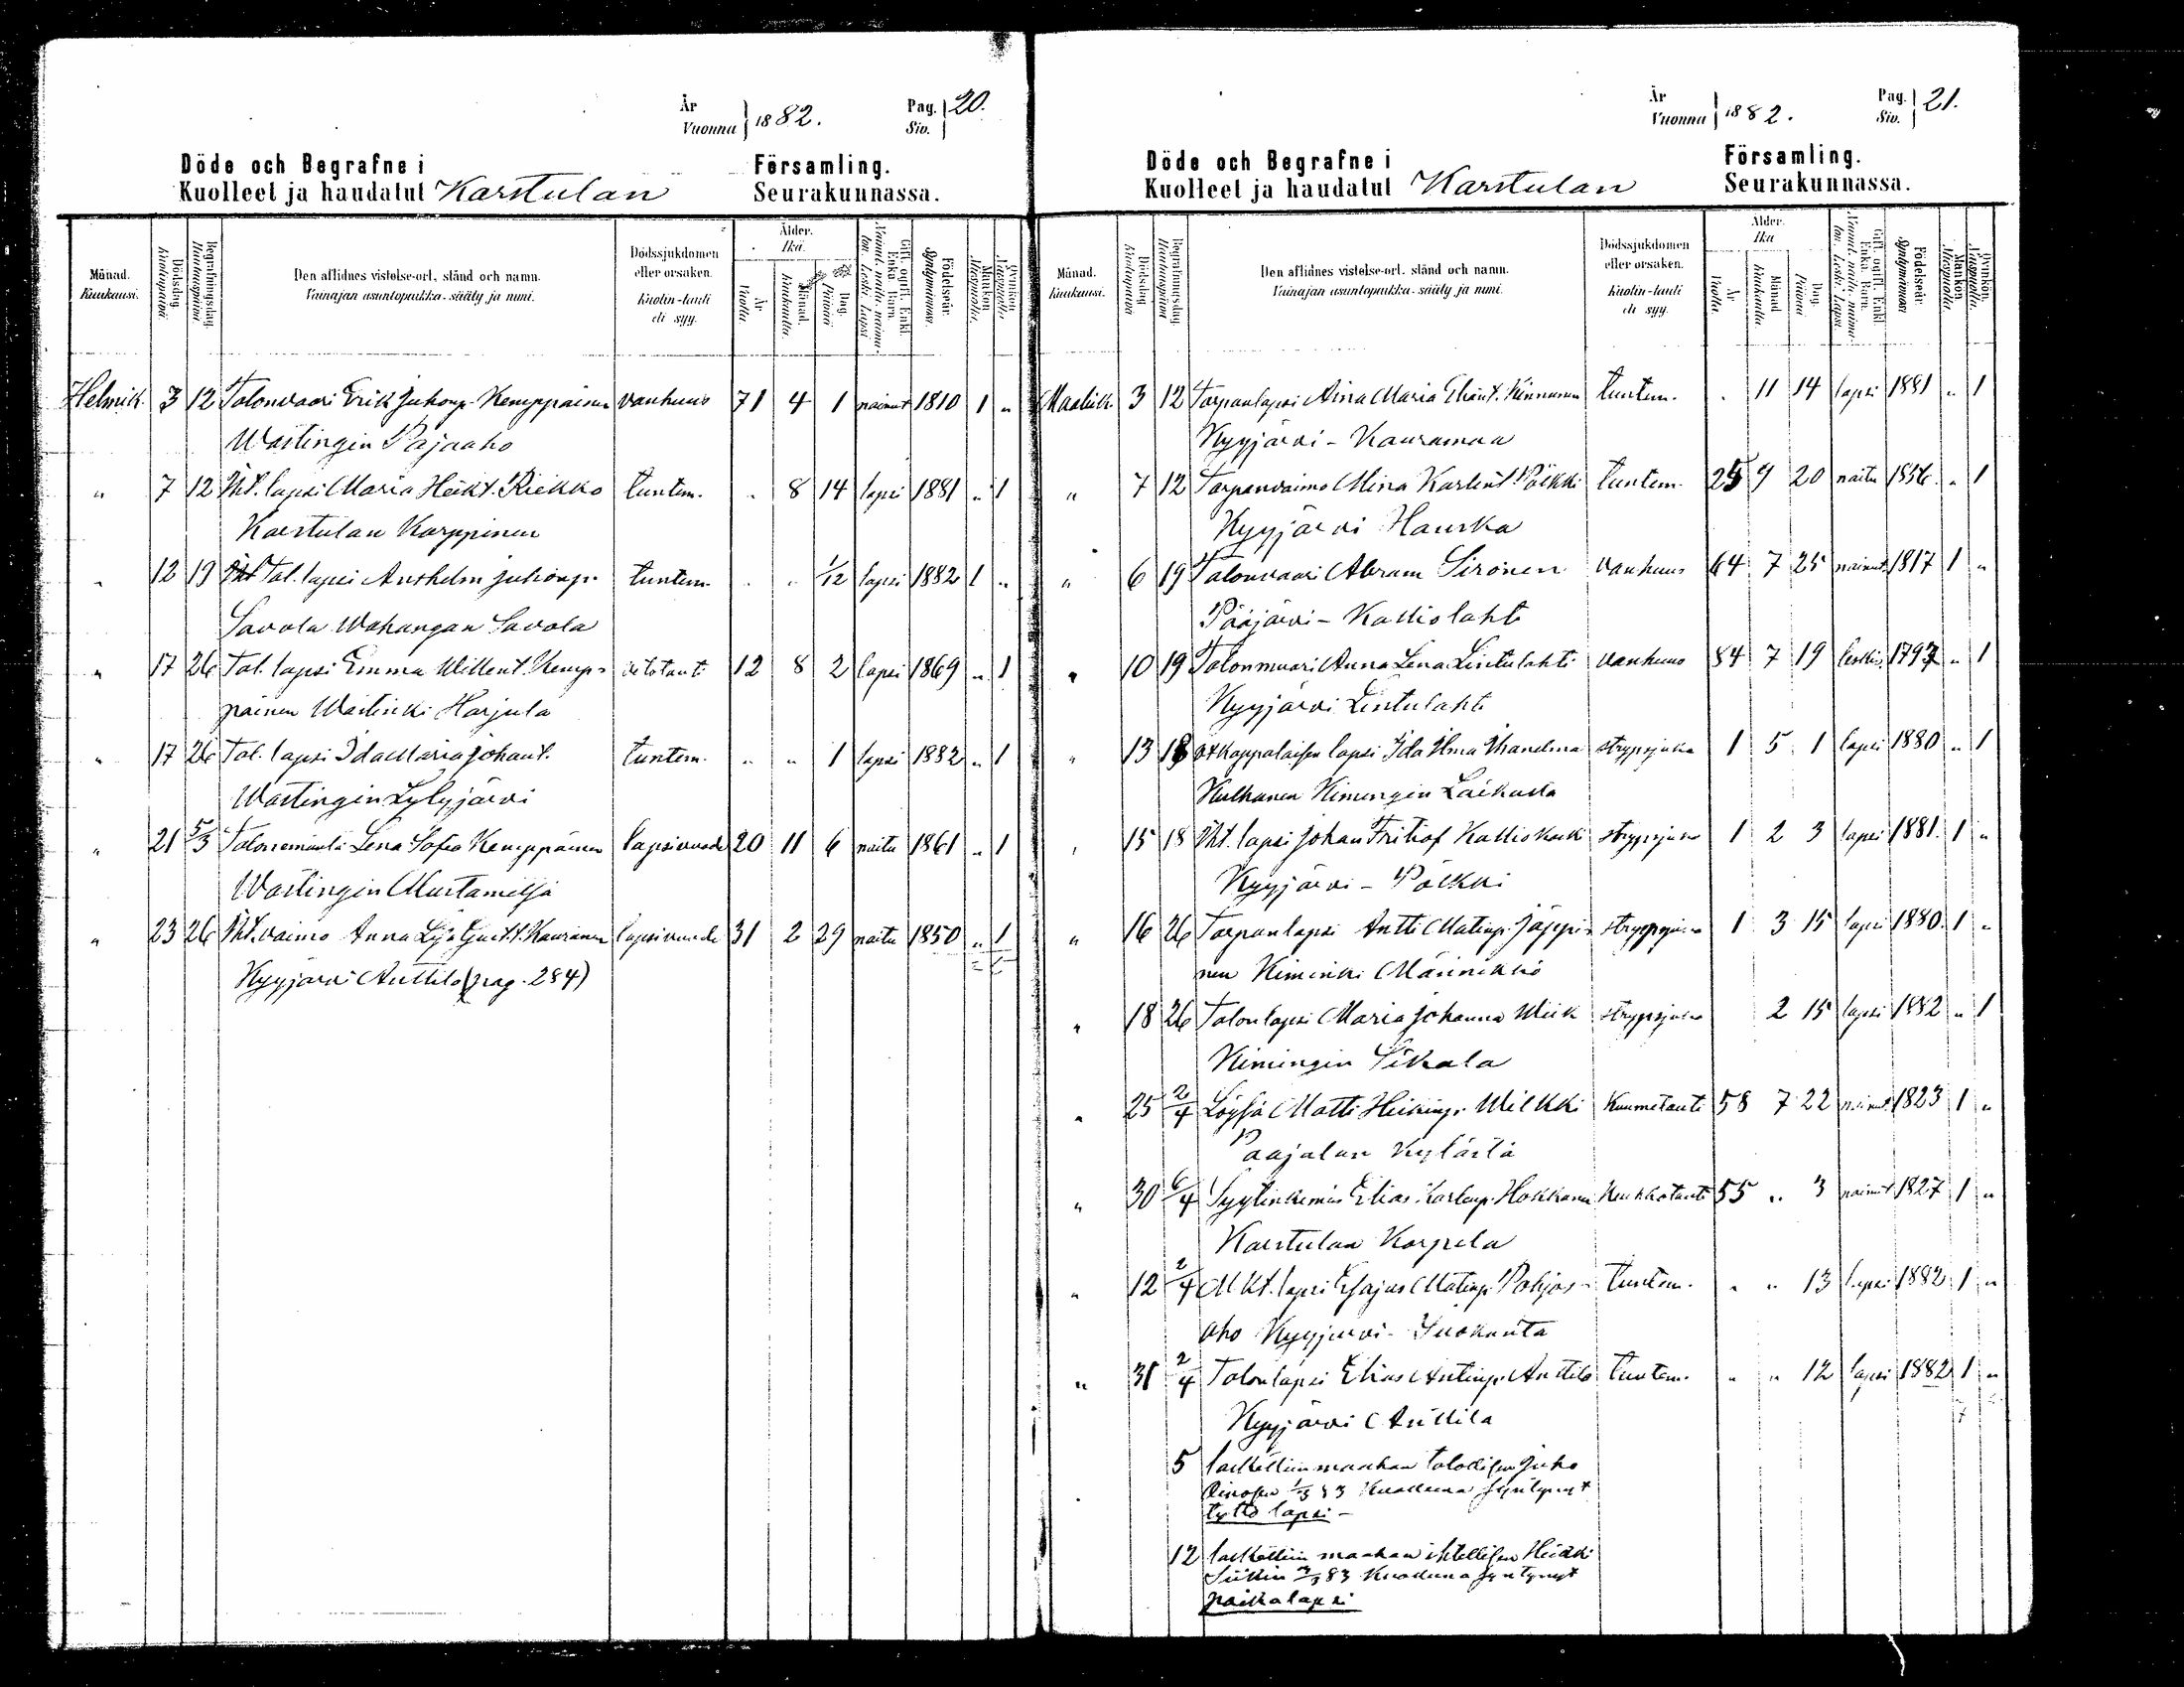 År
Vuonna 1882.
Pag.
Siv. 20.
Döde och Begrafne i Församling.
Kuolleet ja haudatut Karstulan Seurakunnassa.
Månad.
Kuukausi.
Dödsdag.
Kuolinpäivä.
Begrafningsdag.
Hautauspäivä.
Den aflidnes vistelse-ort, stånd och namn.
Vainajan asuntopaikka, sääty ja nimi.
Dödssjukdomen
eller orsaken.
Kuolin-tauti
eli syy.
Ålder.
Ikä.
År.
Vuotta.
Månad.
Kuukautta.
Dag.
Päivää
Gift, ogift, Enkl.
Enka, Barn.
Födelseår.
Syntymävuosi.
Mankön
Miespuolia.
Qvinkön
Helmik. 3 12 Talonvaari Erik Juhonp. Kemppainen vanhuus 71 4 1 nainut 1810 1 "
Wastingin Pajaaho
" 7 12 Iht. lapsi Maria Heikt. Riekko tuntem. . 8 14 lapsi 1881 " 1
Karstulan Karppinen
" 12 19 Tal. lapsi Anshelm Juhonp. tuntem. . " 1/12 lapsi 1882 1 "
Savola Wahangan Savola
" 17 26 Tal. lapsi Emma Willent. Kemp- 12 8 2 lapsi 1869 " 1
painen Wastinki Harjula
" 17 26 Tal. lapsi Ida Maria Johant. tuntem. " " 1 lapsi 1882 " 1
Wastingin Lylyjärvi
" 21 5/3 Talonemäntä Lena Sofia Kemppainen lapsivuode 20 11 6 naitu 1861 " 1
Wastingin Mustamettä
" 23 26 Iht. vaimo Anna Lisa Gust.t. Kauranen lapsivuode 31 2 29 naitu 1850 " 1
Kyyjärvi Anttila (pag. 284)
År
Vuonna 1882.
Pag.
Siv. 21.
Döde och Begrafne i Församling.
Kuolleet ja haudatut Karstulan Seurakunnassa.
Månad.
Kuukausi.
Dödsdag.
Kuolinpäivä
Begrafningsdag
Hautauspäivä
Den aflidnes vistelse-ort, stånd och namn.
Vainajan asuntopaikka, sääty ja nimi.
Dödssjukdomen
eller orsaken.
Kuolin-tauti
eli syy.
Ålder.
Ikä
År.
Vuotta.
Månad
Kuukautta
Dag.
Päivää
Gift, ogift, Enkl.
Enka, Barn.
Födelseår.
Syntymävuosi
Mankön.
Miespuolia.
Qvinkön.
Maalisk. 3 12 Torpanlapsi Aina Maria Eliant. Kinnunen tuntem. . 11 14 lapsi 1881 " 1
Kyyjärvi - Kauramaa
" 7 12 Torpanvaimo Mina Karlent. Pölkki tuntem. 25 9 20 naitu 1856 " 1
Kyyjärvi Hauska
" 6 19 Talonvaari Abram Sironen vanhuus 64 7 25 nainut 1817 1 "
Pääjärvi - Kalliolahti
" 10 19 Talonmuori Anna Lena Lintulahti vanhuus 84 7 19 leski 1797 " 1
Kyyjärvi Lintulahti
" 13 18 lapsi Ida Ilma strypsjuka 1 5 1 lapsi 1880 " 1
Hulkanen Kimingin
" 15 18 Iht. lapsi Johan Fritiof Kalliokoski strypsjuka 1 2 3 lapsi 1881. 1 "
Kyyjärvi - Pölkki
" 16 26 Torpanlapsi Antti Matinp. Jäppi- strypsjuka 1 3 15 lapsi 1880. 1 "
nen Kiminki Männikkö
" 18 26 Talonlapsi Maria Johanna Wiik strypsjuka 2 15 lapsi 1882 " 1
Kimingin Sikala
" 25 2/4 Löysä Matti Heikinp. Wilkki Kuumetauti 58 7 22 nainut 1823 1 "
Paajalan kylästä
" 30 6/4 Syytinkimies Elias Karlenp. Hokkanen Keuhkotauti 55 " 3 nainut 1827 1 "
Karstulan Korpela
" 12 2/4 Mkt. lapsi Esajas Matinp. Pohjos- tuntem. " " 13 lapsi 1882 1 "
aho Kyyjärvi - Suokanta
" 31 2/4 Talonlapsi Elias Antinp. Anttila tuntem. " " 12 lapsi 1882 1 "
Kyyjärvi Anttila
5 laskettiin maahan talollisen Juho
1/3 83 Kuolleena syntynyt
tyttö lapsi -
12 laskettiin maahan itsellisen Heikki
83 Kuolleena syntynyt
poikalapsi